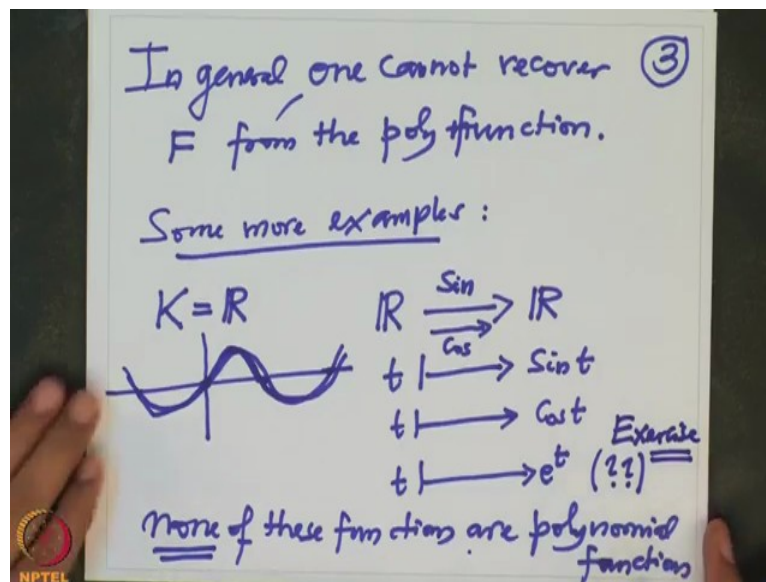 In general one cannot recover ③
F from the poly function.
Some more examples:
K = ℝ
ℝ Sin Cos ⟶ ℝ
t ⟼ Sin t
t ⟼ Cos t
Exercise
t ⟼ e^t (??)
None of these functions are polynomial
function
NPTEL